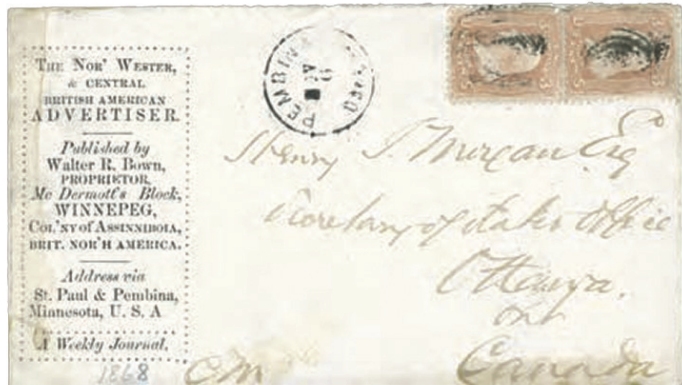 THE NOR' WESTER,
& CENTRAL
BRITISH AMERICAN
ADVERTISER.
Published by
Walter R, Bown,
PROPRIETOR,
Mc Dermott's Block,
WINNEPEG,
COL.'NY OF ASSINNIBOIA,
BRIT. NOR'H AMERICA.
Address via
St. Paul & Pembina,
Minnesota, U. S. A
A Weekly Journal.
1868
PEMBIN
Henry J. Morgan Esq
Secretary of States Office
Ottawa.
Ont
Canada